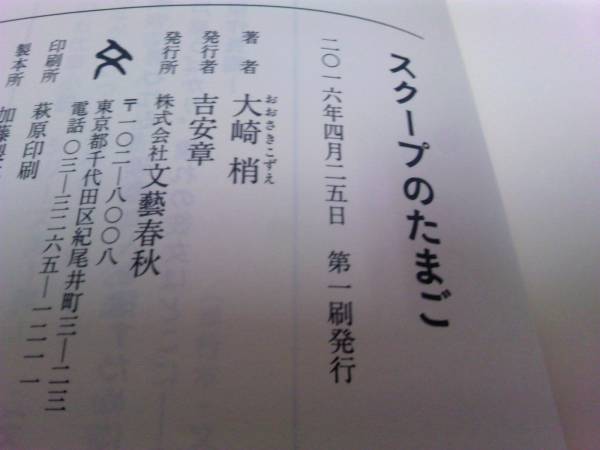 スクープのたまご
二〇一六年四月二五日 第一刷発行
著者 大崎梢
おおさきこずえ
発行者 吉安章
発行所 株式会社文藝春秋
〒一〇二―八〇〇八
東京都千代田区紀尾井町三―二三
電話〇三―三二六五―一二一一
印刷所 萩原印刷
製本所 加藤製